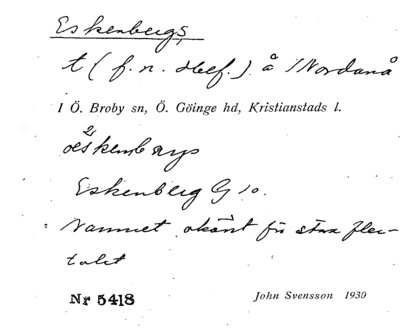 Eskenbergs
t (f. n. Hef.) å /Nordanå
I Ö. Broby sn, Ö. Göinge hd, Kristianstads l.
Eskenberg G 10.
Namnet okänt för stora fler-
talet
Nr 5418 John Svensson 1930